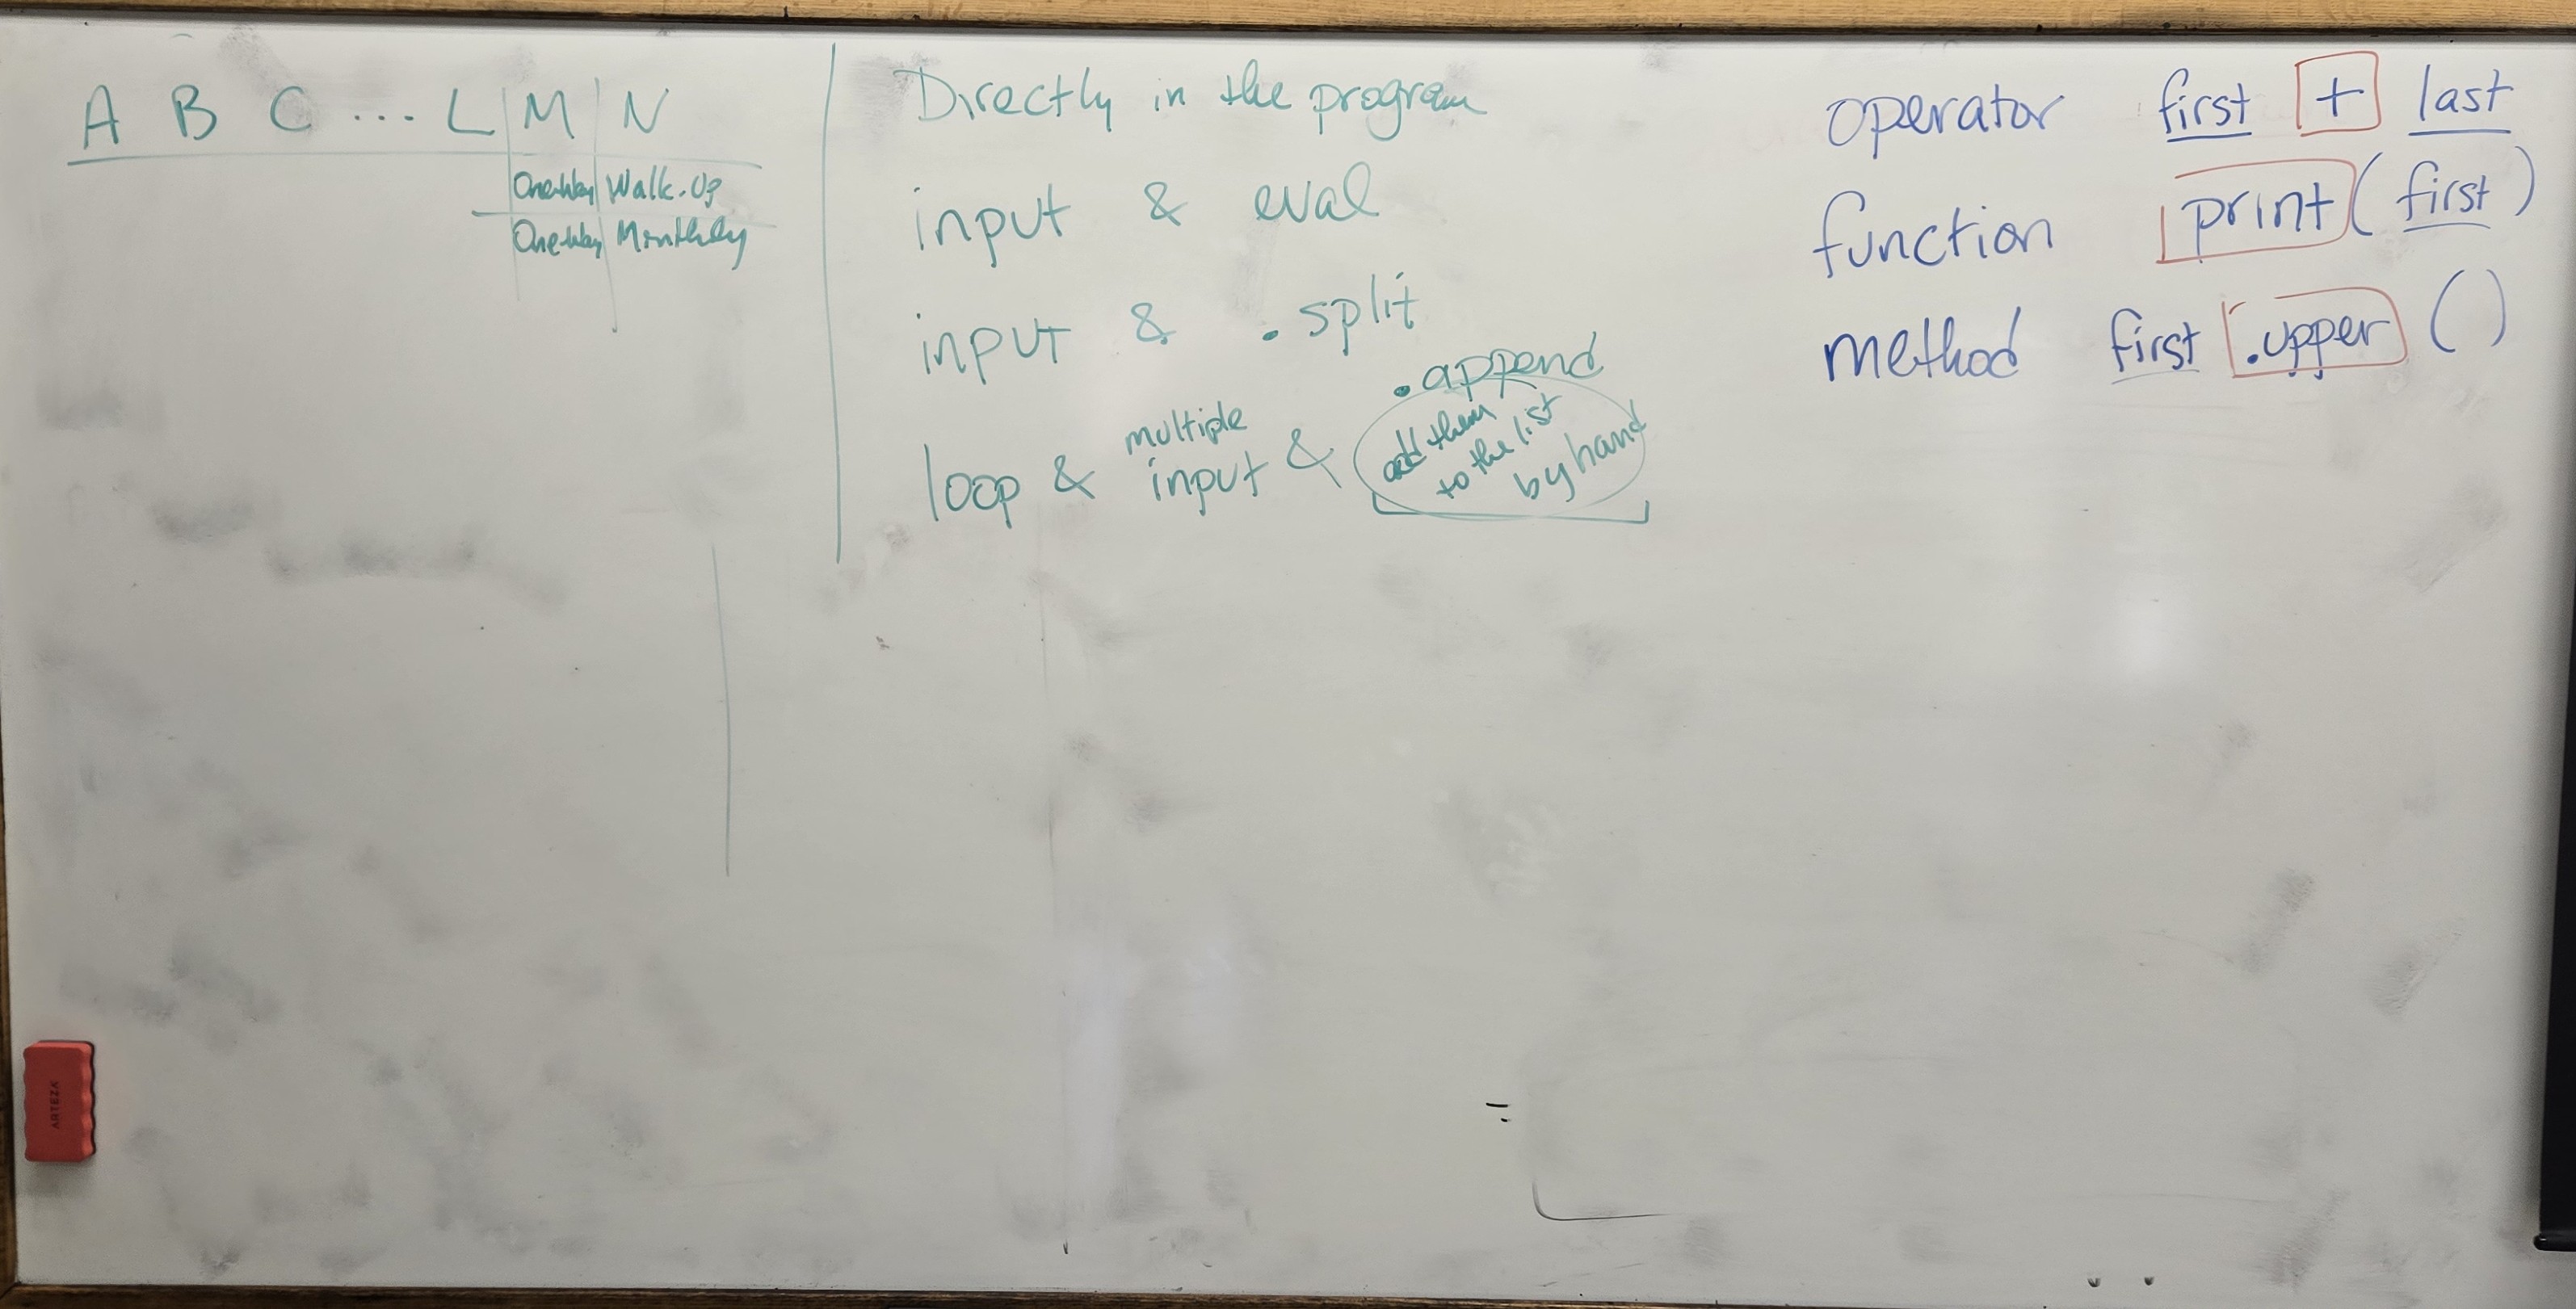 A B C ... L M N
One Way Walk-Up
One Way Monthly
Directly in the program
input & eval
input & .split
.append
loop & multiple input & add them to the list by hand
operator first + last
function print(first)
method first .upper ()
ARTEZA